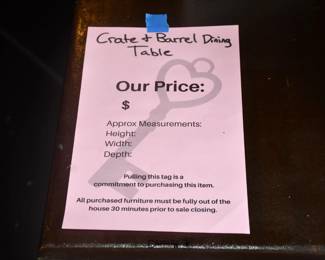 Crate & Barrel Dining
Table
Our Price:
$
Approx Measurements:
Height:
Width:
Depth:
Pulling this tag is a
commitment to purchasing this item.
All purchased furniture must be fully out of the
house 30 minutes prior to sale closing.